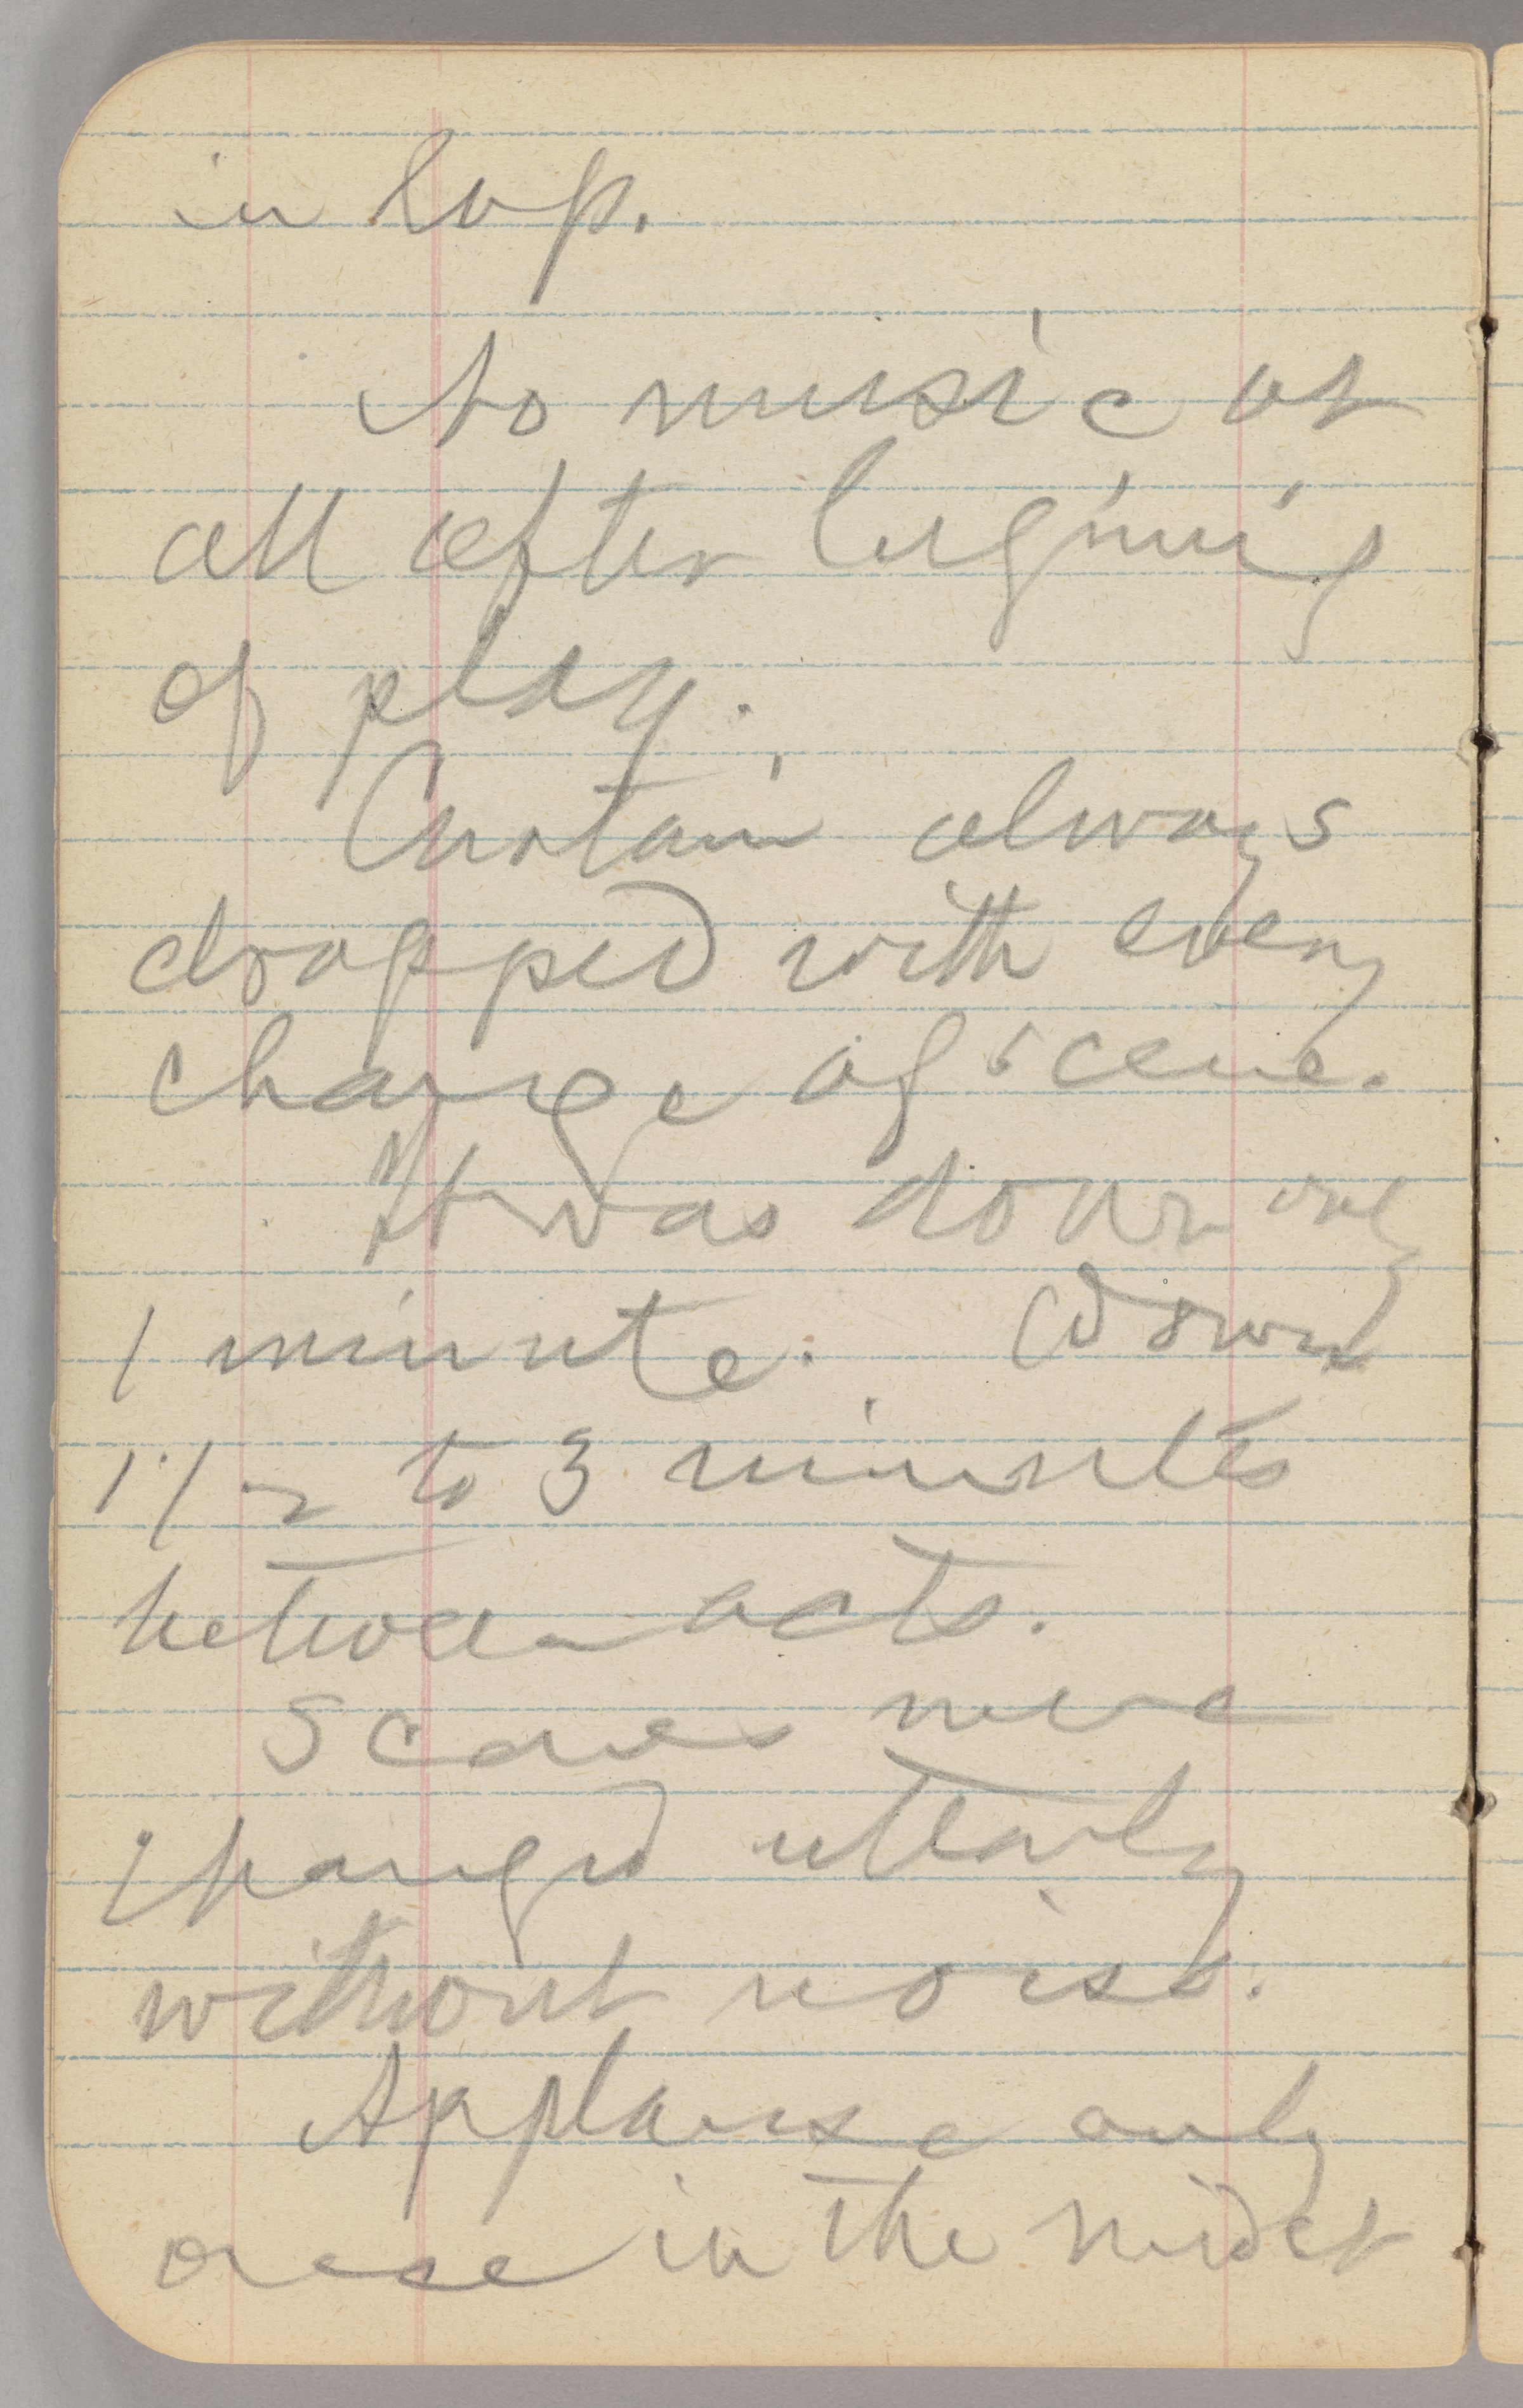 in lap.
No music at
all after begining
of play.
Curtain always
dropped with every
change of scene.
It was down only
1 minute. (Down
1 1/2 to 3 minutes
between acts.
Scenes were
changed utterly
without noise.
Applause only
once in the midst